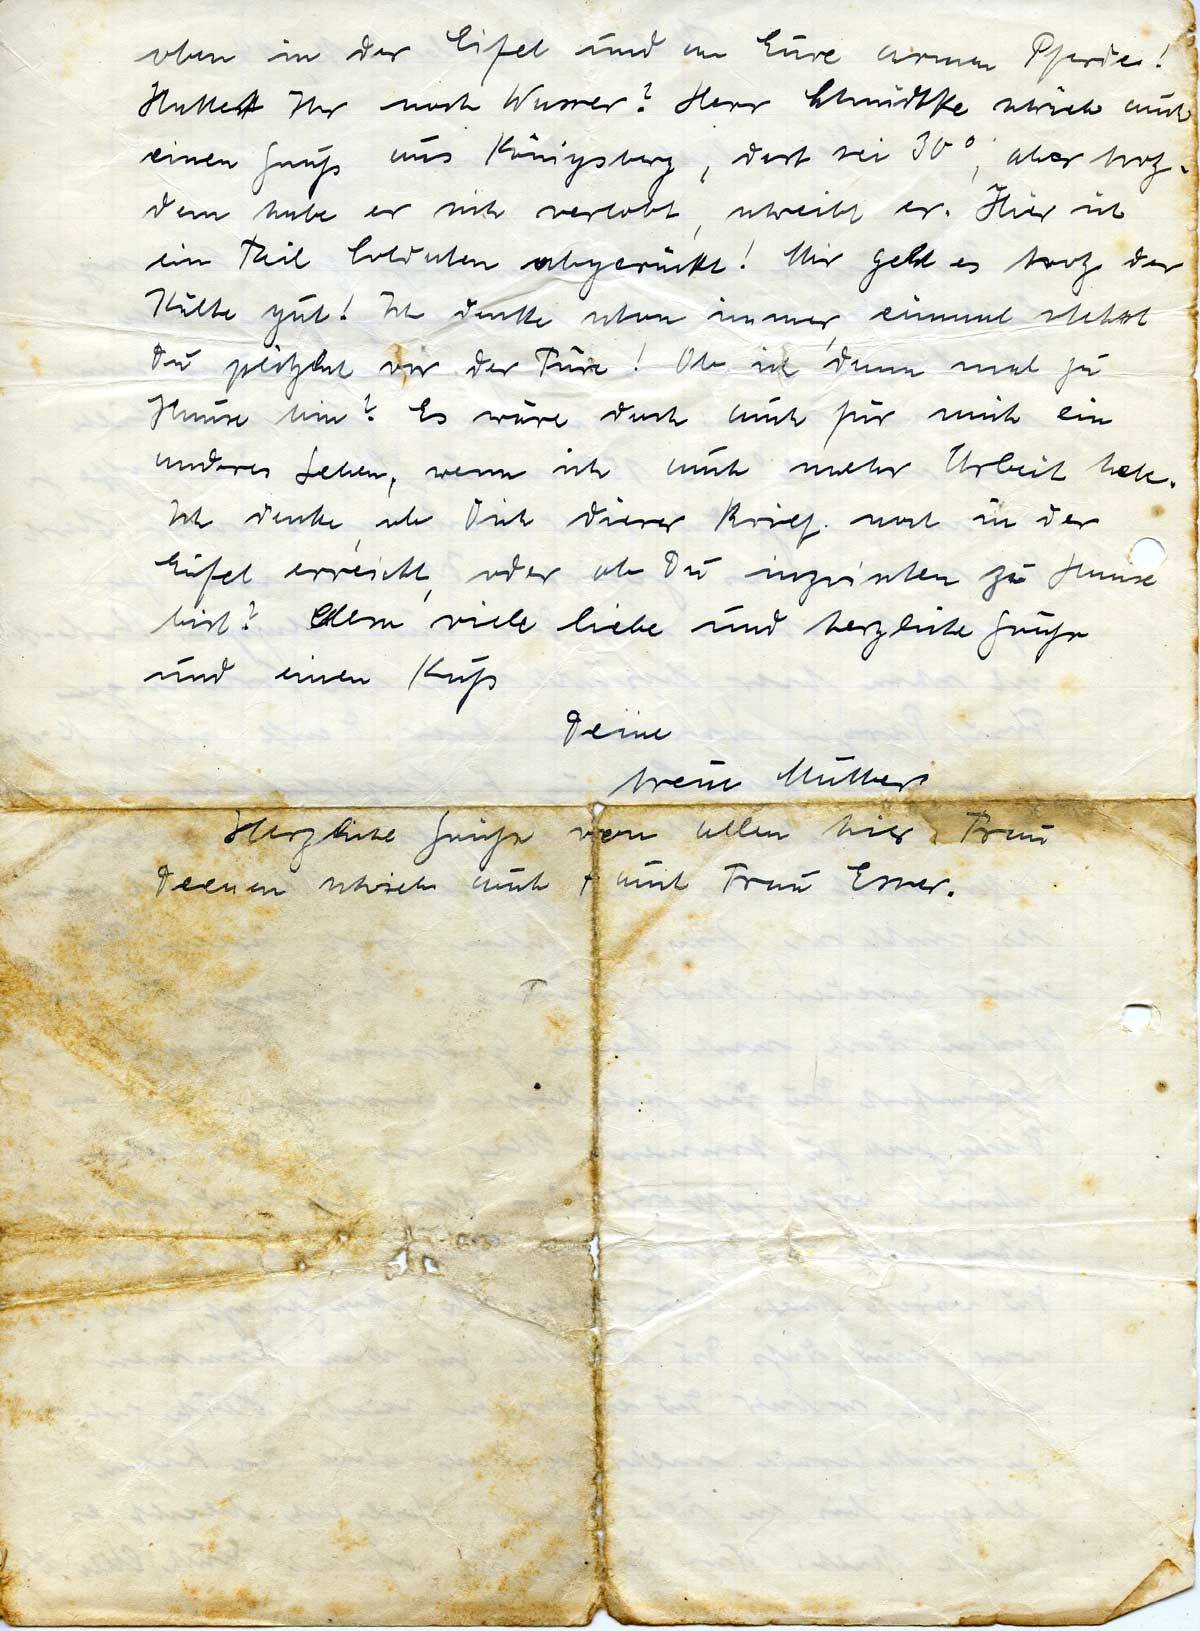 oben in der Eifel und an Eure armen Pferde!
Hattet Ihr noch Wasser? Herr Schmidtke schrieb auch
einen Gruß aus Königsberg, dort sei 30°, aber trotz-
dem habe er sich verlobt, schreibt er. Hier ist
ein Teil Soldaten abgerückt! Mir geht es trotz der
Kälte gut! Ich denke schon immer, einmal stehst
Du plötzlich vor der Türe! Ob ich dann mal zu
Hause bin? Es wäre doch auch für mich ein
anderes Leben, wenn ich auch mehr Arbeit habe.
Ich denke, ob Dich dieser Brief noch in der
Eifel erreicht, oder ob Du inzwischen zu Hause
bist? Also viele liebe und herzliche Grüße
und einen Kuß
Deine
treue Mutter.
Herzliche Grüße von allen hier. Frau
schrieb auch + auch Frau Esser.